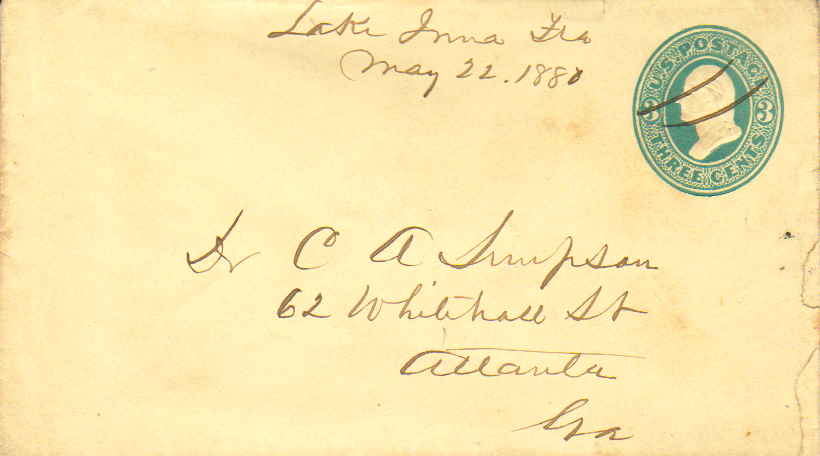 Lake Inna Fla
May 22. 1881
U.S. POSTAGE
3 3
THREE CENTS
Dr C A Simpson
62 Whitehall St
Atlanta
Ga